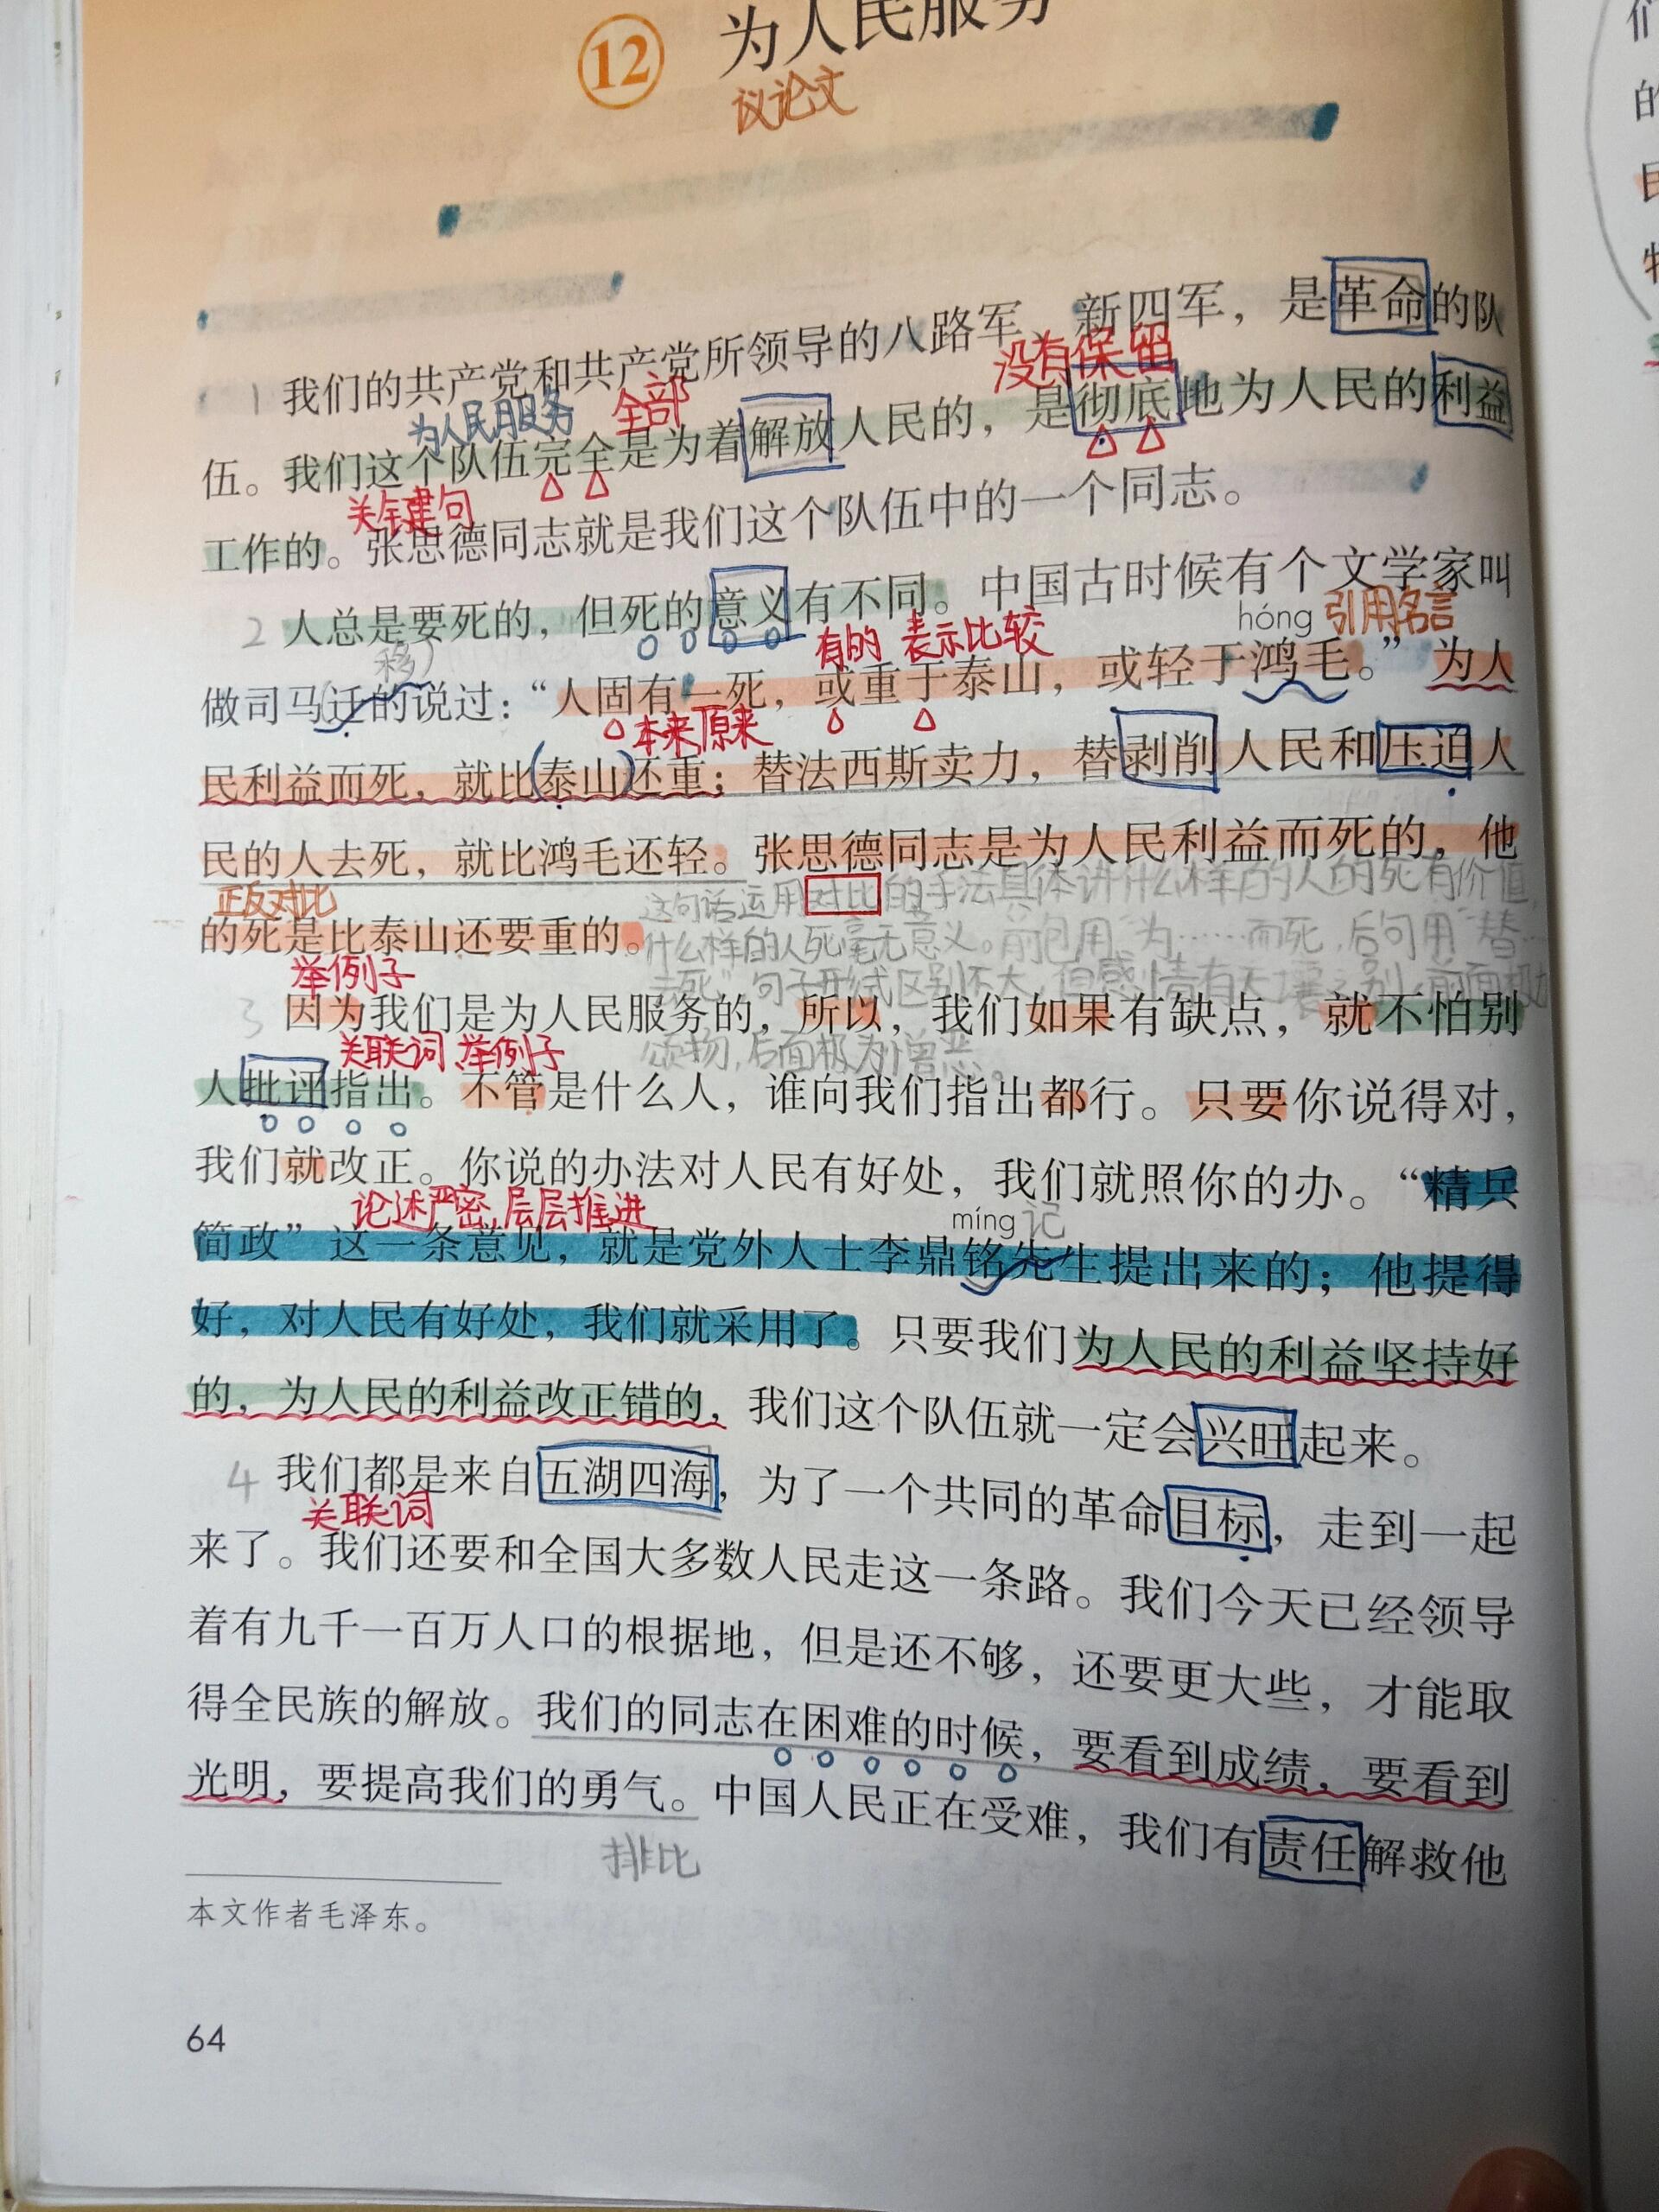 12 为人民服务
议论文
1 我们的共产党和共产党所领导的八路军、新四军，是革命的队
为人民服务 全部 没有保留
伍。我们这个队伍完全是为着解放人民的，是彻底地为人民的利益
关键句
工作的。张思德同志就是我们这个队伍中的一个同志。
2 人总是要死的，但死的意义有不同。中国古时候有个文学家叫
移 有的 表示比较 hóng 引用名言
做司马迁的说过：“人固有一死，或重于泰山，或轻于鸿毛。”为人
本来原来
民利益而死，就比(泰山)还重；替法西斯卖力，替剥削人民和压迫人
民的人去死，就比鸿毛还轻。张思德同志是为人民利益而死的，他
正反对比
这句话运用对比的手法具体讲什么样的人的死有价值，
的死是比泰山还要重的。
什么样的人死毫无意义。前句用“为……而死，后句用“替…
举例子
去死”句子形式区别不大，但感情有天壤之别，前面极为
3 因为我们是为人民服务的，所以，我们如果有缺点，就不怕别
关联词 举例子
颂扬，后面极为憎恶。
人批评指出。不管是什么人，谁向我们指出都行。只要你说得对，
我们就改正。你说的办法对人民有好处，我们就照你的办。“精兵
论述严密，层层推进 míng 记
简政”这一条意见，就是党外人士李鼎铭先生提出来的；他提得
好，对人民有好处，我们就采用了。只要我们为人民的利益坚持好
的，为人民的利益改正错的，我们这个队伍就一定会兴旺起来。
4 我们都是来自五湖四海，为了一个共同的革命目标，走到一起
关联词
来了。我们还要和全国大多数人民走这一条路。我们今天已经领导
着有九千一百万人口的根据地，但是还不够，还要更大些，才能取
得全民族的解放。我们的同志在困难的时候，要看到成绩，要看到
光明，要提高我们的勇气。中国人民正在受难，我们有责任解救他
排比
本文作者毛泽东。
64
们
的
民